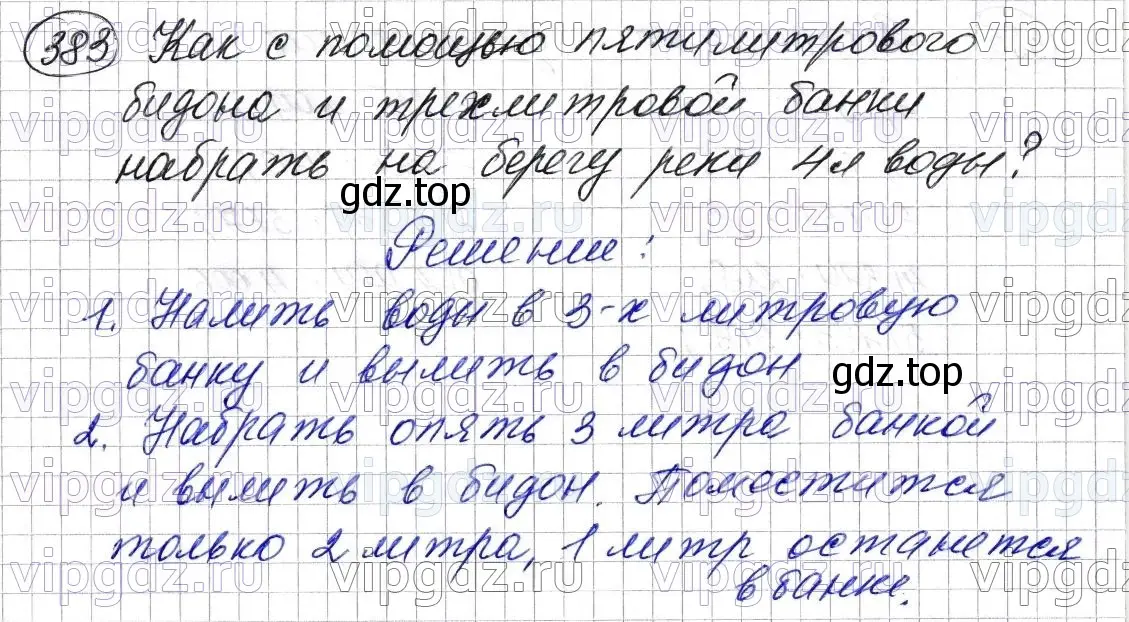 383 Как с помощью пятилитрового
бидона и трехлитровой банки
набрать на берегу реки 4л воды?
gdz.top
Решение:
1. Налить воды в 3-х литровую
банку и вылить в бидон
gdz.top
2. Набрать опять 3 литра банкой
и вылить в бидон. Поместится
только 2 литра, 1 литр останется
в банке.
vipgdz.ru